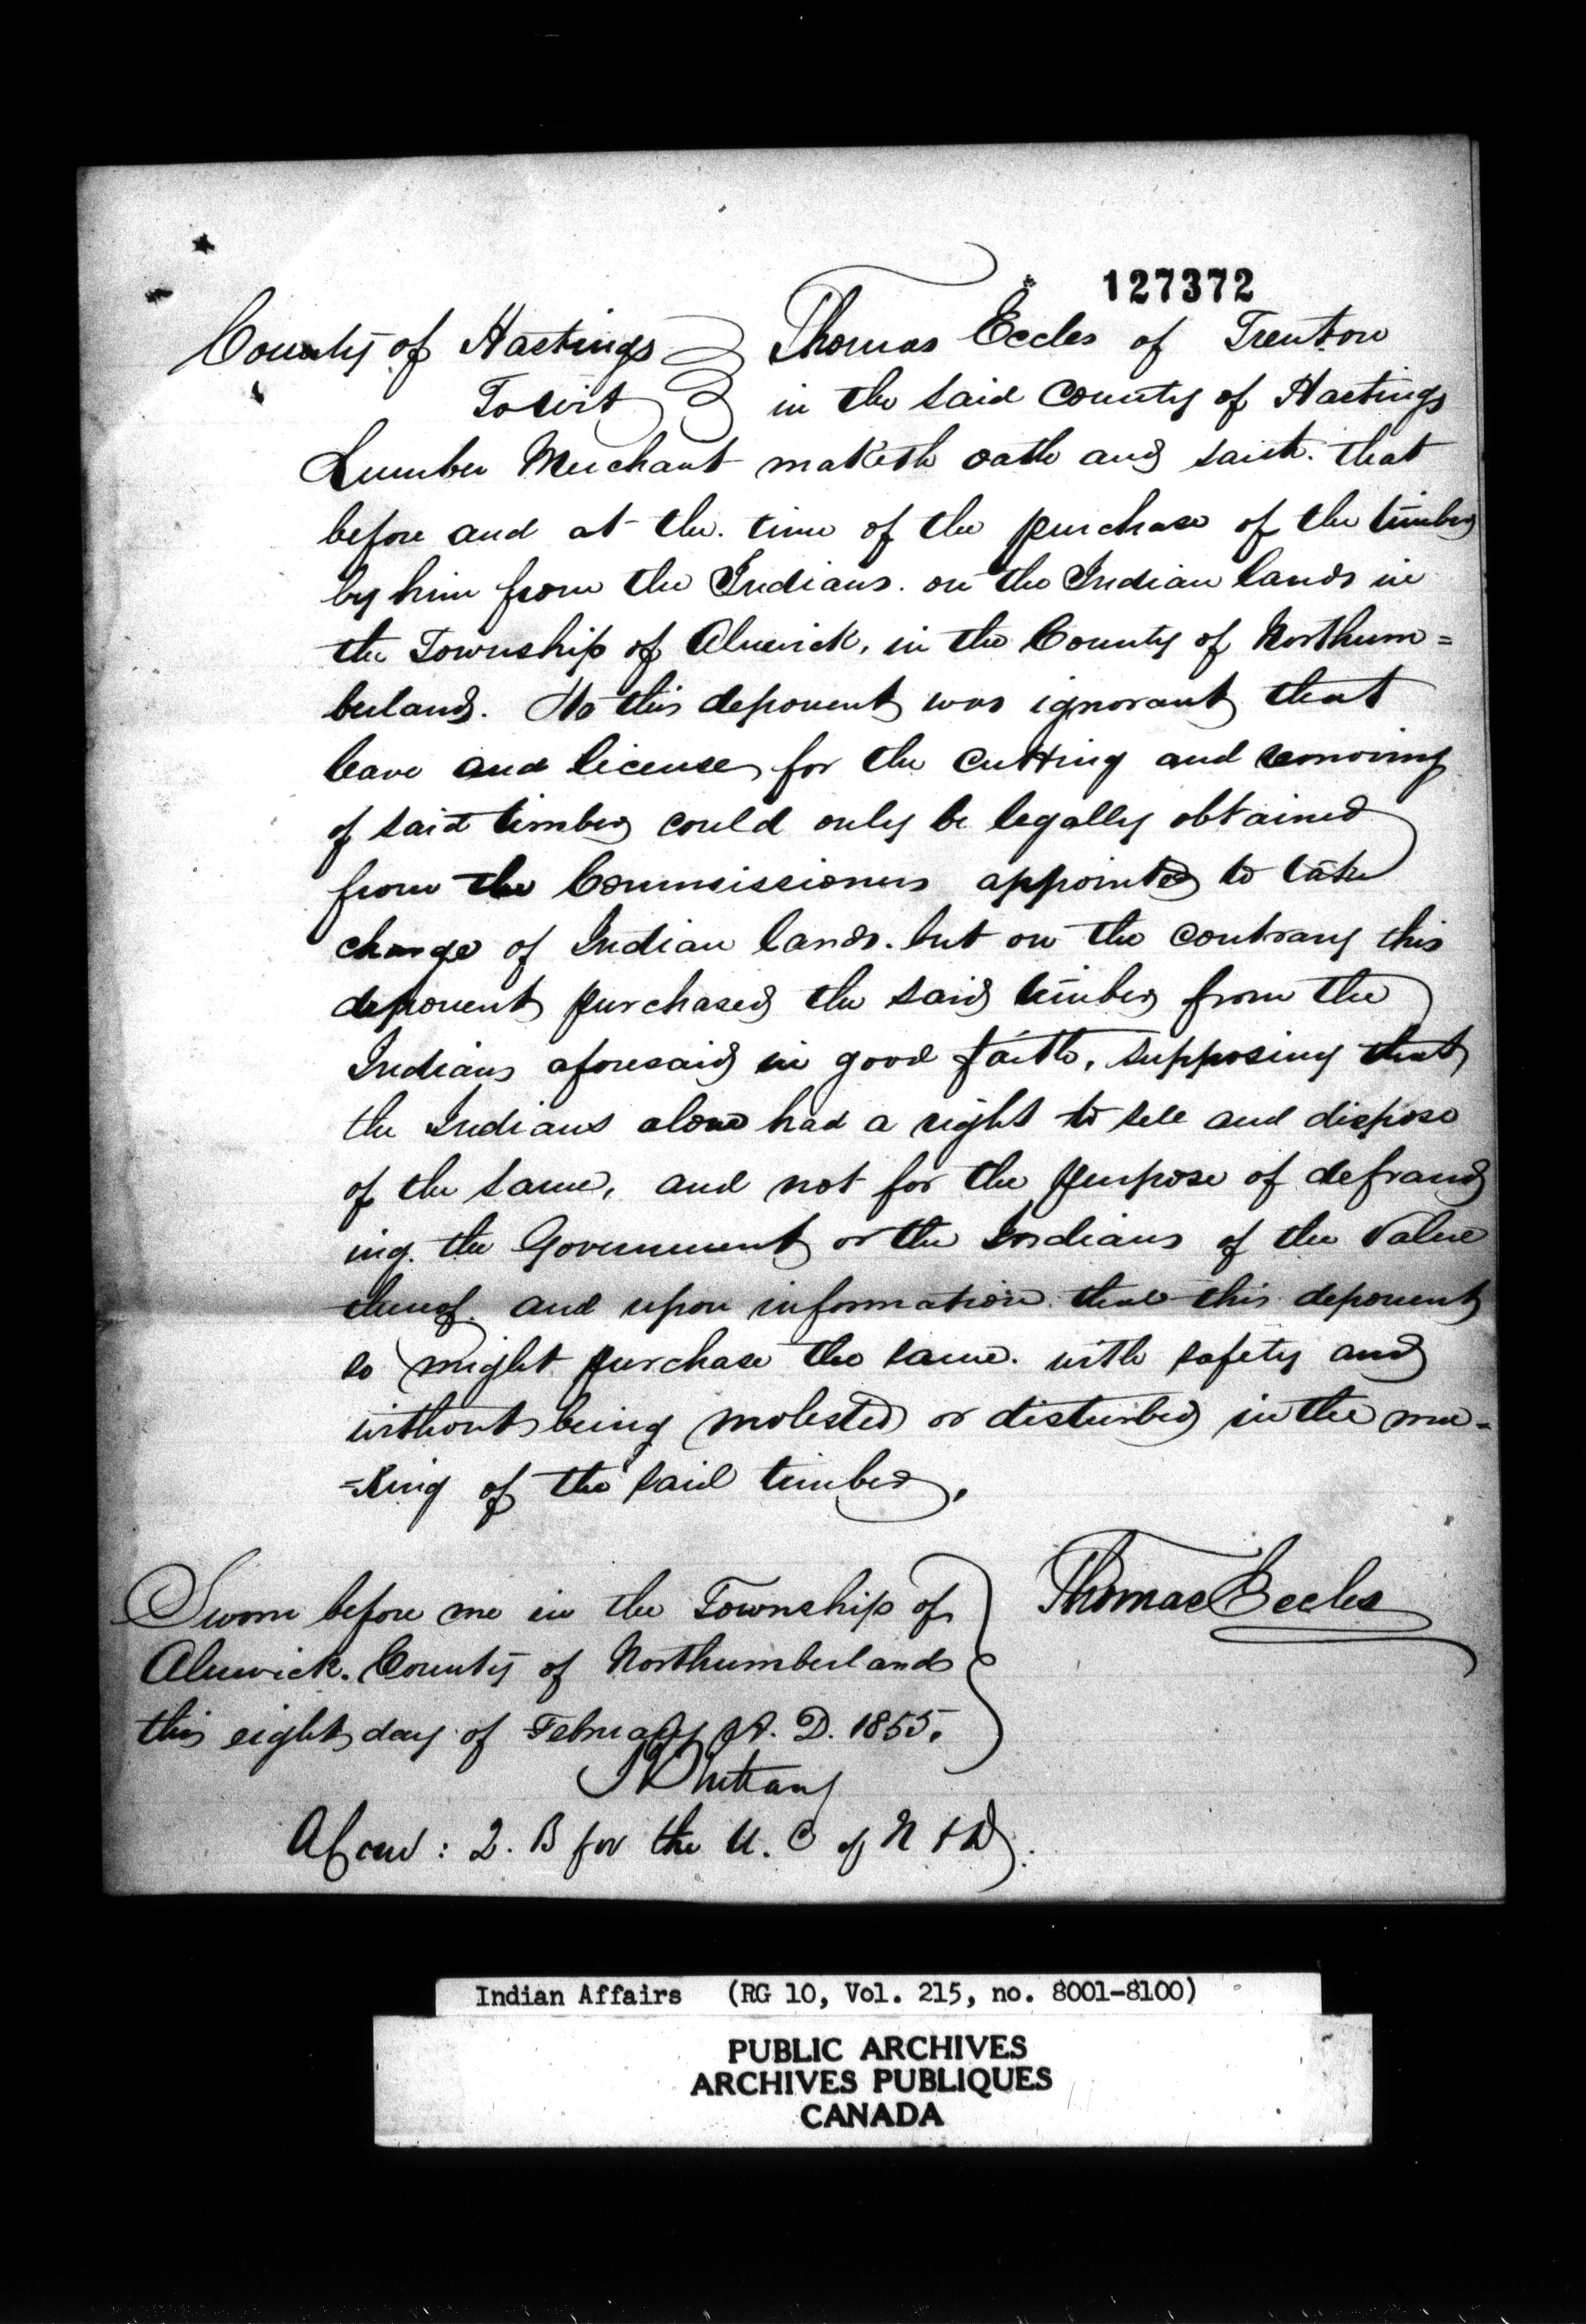 127372
County of Hastings } Thomas Eccles of Trenton
To wit } in the said County of Hastings
Lumber Merchant maketh oath and saith. that
before and at the. time of the purchase of the timber
by him from the Indians. on the Indian lands in
the Township of Alnwick, in the County of Northum=
berland. He this deponent was ignorant that
leave and license for the cutting and removing
of said timber could only be legally obtained
from the Commissioners appointed to take
charge of Indian lands. but on the contrary this
deponent purchased the said timber from the
Indians aforesaid in good faith, supposing that
the Indians alone had a right to sell and dispose
of the same, and not for the purpose of defraud
ing. the Government or the Indians of the Value
thereof. and upon information that this deponent
so might purchase the same. with safety and
without being molested or disturbed in the ma=
=king of the said timber.
Sworn before me in the Township of
Alnwick. County of Northumberland
this eight day of February A. D. 1855.
Thomas Eccles
: 2. B for the U. C of N & D.
Indian Affairs (RG 10, Vol. 215, no. 8001-8100)
PUBLIC ARCHIVES
ARCHIVES PUBLIQUES
CANADA